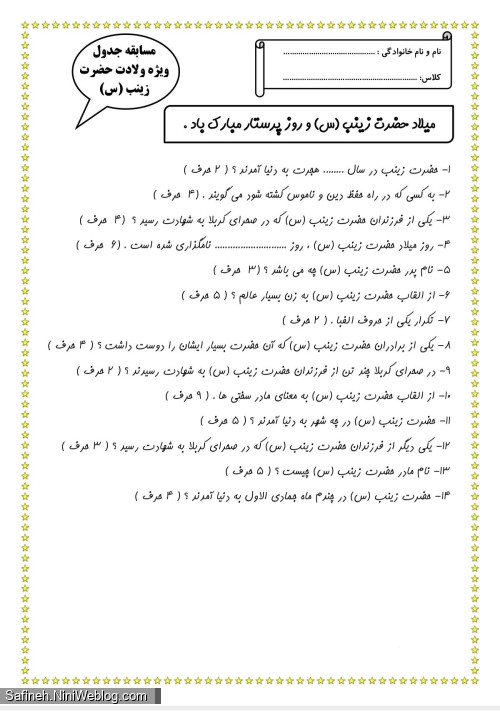 مسابقه جدول
ویژه ولادت حضرت
زینب (س)
نام و نام خانوادگی : ..........................................
کلاس: ............................................................
میلاد حضرت زینب (س) و روز پرستار مبارک باد .
۱- حضرت زینب در سال ........ هجرت به دنیا آمدند ؟ ( ۲ حرف )
۲- به کسی که در راه حفظ دین و ناموس کشته شود می گویند . (۴ حرف )
۳- یکی از فرزندان حضرت زینب (س) که در صحرای کربلا به شهادت رسید ؟ (۴ حرف )
۴- روز میلاد حضرت زینب (س) ، روز ............................ نامگذاری شده است . (۶ حرف )
۵- نام پدر حضرت زینب (س) چه می باشد ؟ (۳ حرف )
۶- از القاب حضرت زینب (س) به زن بسیار عالم ؟ ( ۵ حرف )
۷- تکرار یکی از حروف الفبا . ( ۲ حرف )
۸- یکی از برادران حضرت زینب (س) که آن حضرت بسیار ایشان را دوست داشت ؟ ( ۴ حرف )
۹- در صحرای کربلا چند تن از فرزندان حضرت زینب (س) به شهادت رسیدند ؟ ( ۲ حرف )
۱۰- از القاب حضرت زینب (س) به معنای مادر سختی ها . ( ۹ حرف )
۱۱- حضرت زینب (س) در چه شهر به دنیا آمدند ؟ ( ۵ حرف )
۱۲- یکی دیگر از فرزندان حضرت زینب (س) که در صحرای کربلا به شهادت رسید ؟ ( ۳ حرف )
۱۳- نام مادر حضرت زینب (س) چیست ؟ ( ۵ حرف )
۱۴- حضرت زینب (س) در چندم ماه جمادی الاول به دنیا آمدند ؟ ( ۴ حرف )
Safineh.NiniWeblog.com